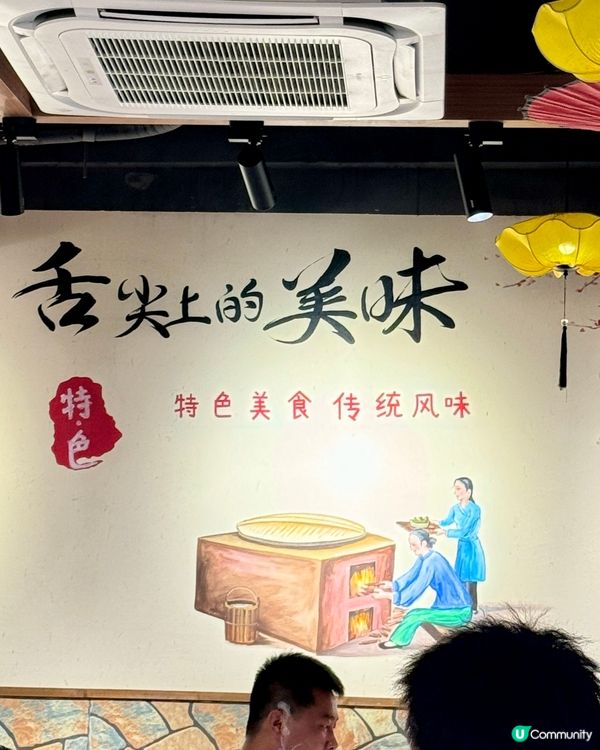 舌尖上的美味
特色
特色美食 传统风味
U Community